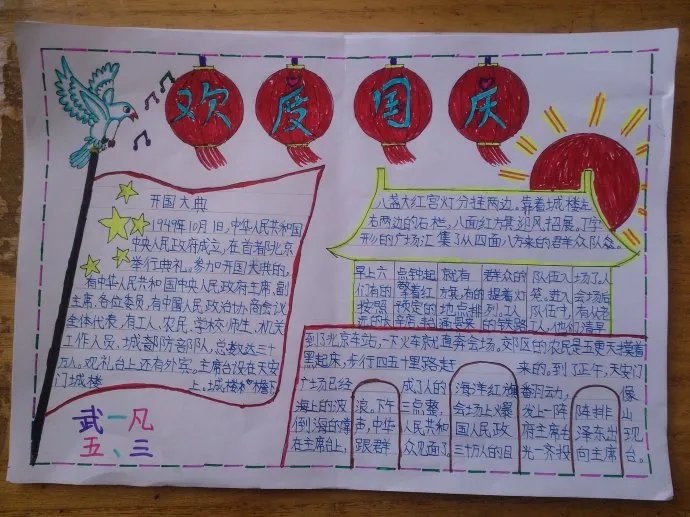 欢度国庆
开国大典
1949年10月1日,中华人民共和国
中央人民政府成立,在首都北京
举行典礼。参加开国大典的,
有中华人民共和国中央人民政府主席,副
主席,各位委员,有中国人民政治协商会议
全体代表,有工人、农民、学校师生、机关
工作人员,城部防部队,总数达三十
万人。观礼台上还有外宾。主席台设在天安
门城楼上。城楼檐下
武一凡
五、三
八盏大红宫灯分挂两边。靠着城楼左
右两边的石栏,八面红方旗迎风招展。丁字
形的广场汇集了从四面八方来的群众队众。
早上六点钟起就有群众的队伍入场了。人
们有的擎着红旗,有的提着灯笼。进入会场后
按照预定的地点排列。工人队伍中,有从老
远的来的铁路工人,他们清早
到了北京车站,一下火车就直奔会场。郊区的农民是五更天摸着
黑起床,步行四五十里路赶来的。到了正午,天安门
广场已经成了人的海洋红旗翻动,像
海上的波浪。下午三点整,会场上爆发上一阵阵排山
倒海的掌声,中华人民共和国人民政府主席台泽东出现
在主席台上,跟群众见面了。三十万人的目光一齐投向主席台。